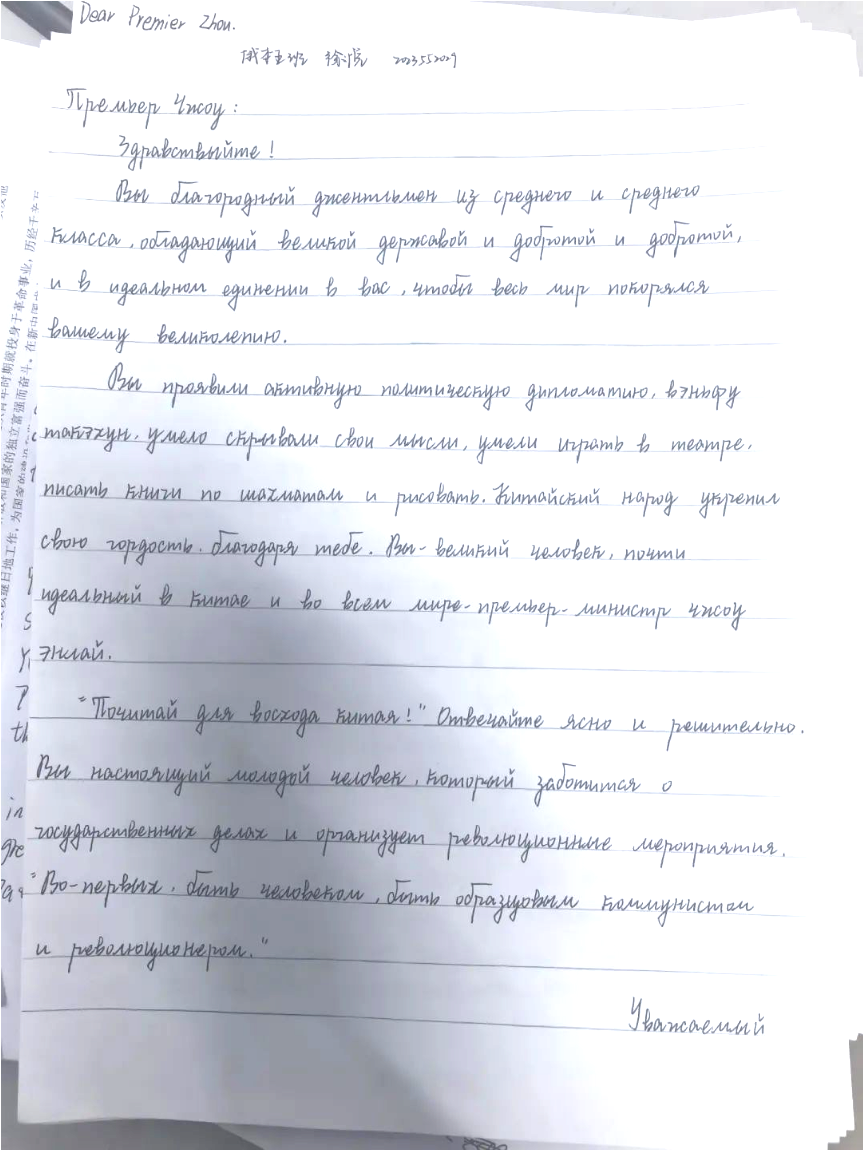 Dear Premier Zhou.
2023552029
Премьер Чжоу:
Здравствыйте!
Вы благородный джентльмен из среднего и среднего
класса, обладающий великой державой и добротой и добротой,
и в идеальном единении в вас, чтобы весь мир покорялся
вашему великолепию.
Вы проявили активную политическую дипломатию, вэньфу
такэхун, умело скрывали свои мысли, умели играть в театре,
писать книги по шахматам и рисовать. Китайский народ укрепил
свою гордость. благодаря тебе. Вы-великий человек, почти
идеальный в Китае и во всем мире-премьер-министр чжоу
Энлай.
"Почитай для восхода Китая!" Отвечайте ясно и решительно.
Вы настоящий молодой человек, который заботится о
государственных делах и организует революционные мероприятия.
"Во-первых, быть человеком, быть образцовым коммунистом
и революционером."
Уважаемый